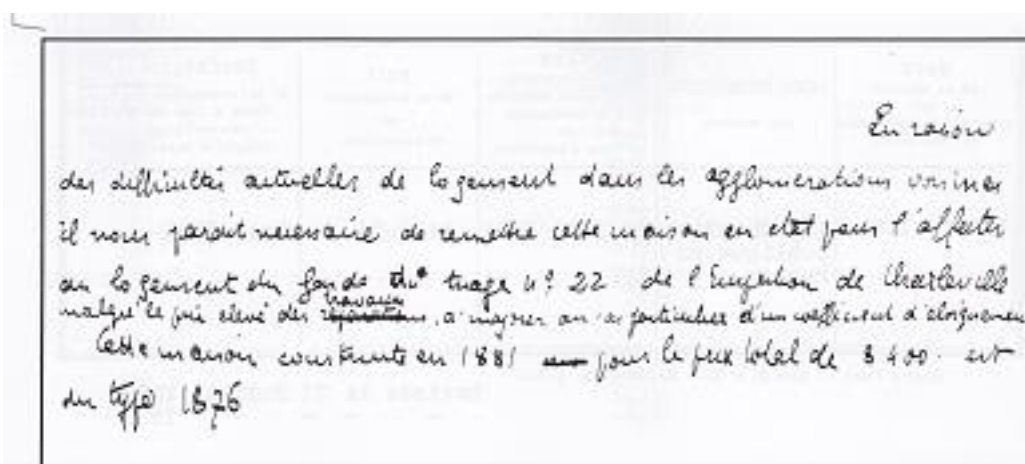 En raison
des difficultés actuelles de logement dans les agglomérations voisines
il nous parait nécessaire de remettre cette maison en etat pour l'affecter
au logement du garde du triage n° 22 de l'Inspection de Charleville
malgré le prix élevé des travaux, a majorer au cas particulier d'un coefficient d'éloignement
Cette maison construite en 1881 pour le prix total de 8400. est
du type 1876